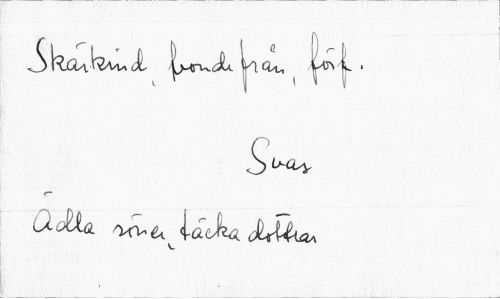 Skärkind, bonde från, förf.
Svar
Ädla söner, täcka döttrar